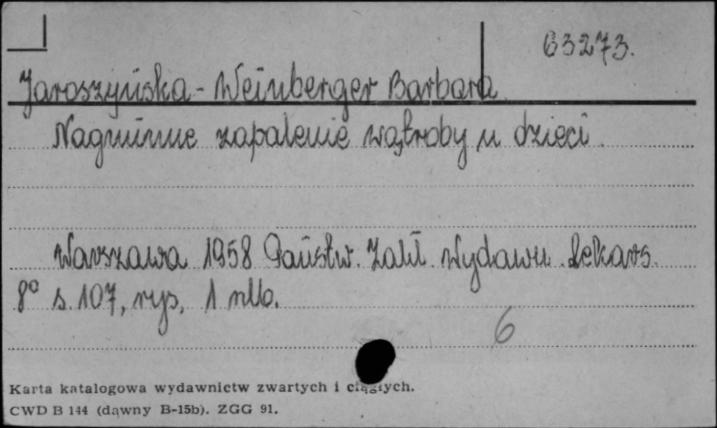 63273.
Jaroszyńska - Weinberger Barbara
Nagminne zapalenie wątroby u dzieci.
Warszawa 1958 Państw. Zakł. Wydawn. Lekars.
8° s. 107, rys, 1 nlb.
6
Karta katalogowa wydawnictw zwartych i ciągłych.
CWD B 144 (dawny B-15b). ZGG 91.